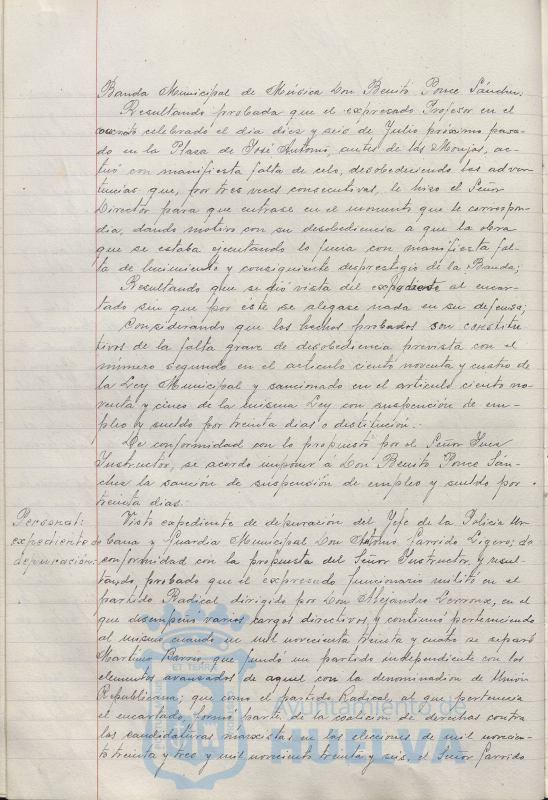 Banda Municipal de Música Don Benito Ponce Sánchez;
Resultando probada que el expresado Profesor en el
concierto celebrado el dia diez y seis de Julio próximo pasa-
do en la Plaza de José Antonio, antes de las Monjas, ac-
tuó con manifiesta falta de celo, desobedeciendo las adver-
tencias que, por tres veces consecutivas, le hizo el Señor
Director para que entrase en el momento que le correspon-
dia, dando motivo con su desobediencia a que la obra
que se estaba ejecutando lo fuera con manifiesta fal-
ta de lucimiento y consiguiente desprestigio de la Banda;
Resultando que se dió vista del expediente al encar-
tado sin que por éste se alegase nada en su defensa;
Considerando que los hechos probados son constitu-
tivos de la falta grave de desobediencia prevista con el
número segundo en el articulo ciento noventa y cuatro de
la Ley Municipal y sancionado en el articulo ciento no-
venta y cinco de la misma Ley con suspención de em-
pleo y sueldo por treinta dias o destitución.
De conformidad con lo propuesto por el Señor Juez
Instructor, se acordo imponer á Don Benito Ponce Sán-
chez la sanción de suspensión de empleo y sueldo por
treinta dias.
Personal:
expediente de
depuración:
Visto expediente de depuración del Jefe de la Policia Ur-
bana y Guardia Municipal Don Antonio Garrido Ligero; de
conformidad con la propuesta del Señor Instructor, y resul-
tando, probado que el expresado funcionario militó en el
partido Radical dirigido por Don Alejandro Lerroux, en el
que desempeñó varios cargos directivos, y continuó perteneciendo
al mismo cuando en mil novecientos treinta y cuatro se separó
Martinez Barrio que fundó un partido independiente con los
elementos avanzados de aquel con la denominación de Unión
Republicana; que como el partido Radical, al que pertenecia
el encartado, formó parte de la coalición de derechas contra
las candidaturas marxistas en las elecciones de mil novecien-
to treinta y tres y mil novecientos treinta y seis, el Señor Garrido
ET TERRÆ
Ayuntamiento de
HUELVA